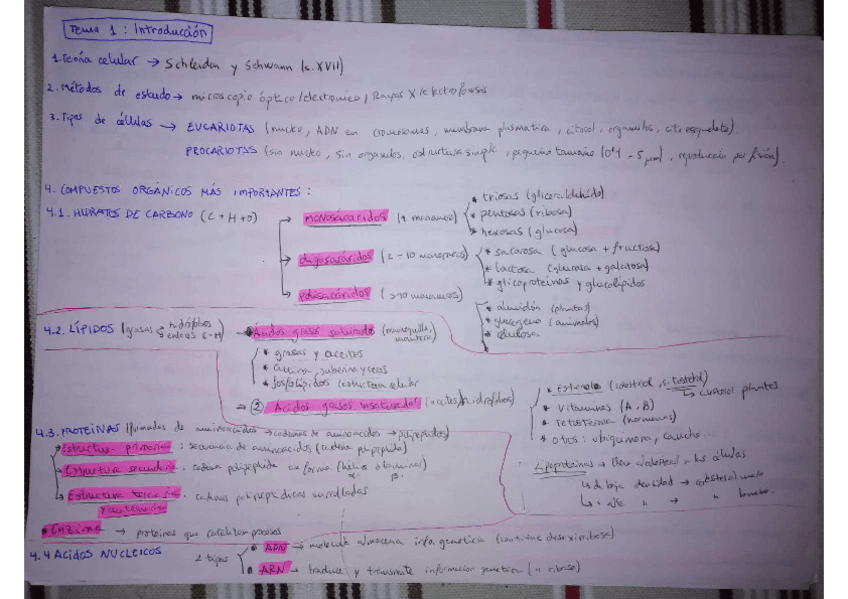 Tema 1: Introducción
1. Teoría celular → Schleiden y Schwann (s. XVII)
2. Métodos de estudio → microscopio óptico/electronico, Rayos X, electroforesis
3. Tipos de células → EUCARIOTAS (nucleo, ADN en cromosomas, membrana plasmatica, citosol, organulos, citoesqueleto).
PROCARIOTAS (sin nucleo, sin organulos, estructura simple, pequeño tamaño (0'1 - 5 μm), reproducción por fisión).
4. COMPUESTOS ORGÁNICOS MÁS IMPORTANTES:
4.1. HIDRATOS DE CARBONO (C + H + O)
→ monosacáridos (1 monomero)
* triosas (gliceraldehído)
* pentosas (ribosa)
* hexosas (glucosa)
→ oligosacáridos (2 - 10 monomeros)
* sacarosa (glucosa + fructosa)
* lactosa (glucosa + galactosa)
* glicoproteinas y glucolípidos
→ polisacáridos (>10 monomeros)
* almidón (plantas)
* glucogeno (animales)
* celulosa
4.2. LÍPIDOS (grasas
hidrófobos
enlaces C-H)
→ Ácidos grasos saturados (mantequilla, manteca)
* grasas y aceites
* cutina, suberina y ceras
* fosfolípidos (estructura celular
→ ② Acidos grasos insaturados
* Esteroles (colesterol, sitosterol)
↳ colesterol plantes
* Vitaminas (A, B)
* Otros: ubiquinona, caucho...
4.3. PROTEÍNAS (formadas de aminoacidos → cadenas de aminoacidos → polipeptidos)
→ Estructura primaria: secuencia de aminoacidos (cadena polipeptido)
→ Estructura secundaria: cadena polipeptido en forma (hélice o laminas)
α- β-
→ Estructura terciaria: cadenas polipeptidicas enrolladas
y cuaternaria
Lipoproteinas → lleva colesterol a las células
↳ de baja densidad → colesterol malo
↳ " alta " → " bueno.
* Enzima → proteinas que catalizan procesos
4.4 Acidos NUCLEICOS
2 tipos
ADN → molécula almacena info genetica (contiene desoxirribosa)
ARN → traduce y transmite informacion genetica (" ribosa)